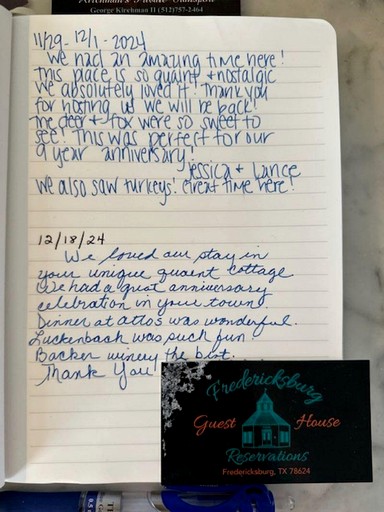 George Kirchman II (512)757-2464
11/29 - 12/1 - 2024
We had an amazing time here!
This place is so quaint + nostalgic
We absolutely loved it! Thank you
for hosting us we will be back!
The deer + fox were so sweet to
see! This was perfect for our
9 year anniversary!
Jessica + Lance
We also saw turkeys! Great time here!
12/18/24
We loved our stay in
your unique quaint cottage
We had a great anniversary
celebration in your town
Dinner at Otto's was wonderful.
Luckenbach was such fun
Becker winery the best.
Thank You
Fredericksburg
Guest House
Reservations
Fredericksburg, TX 78624